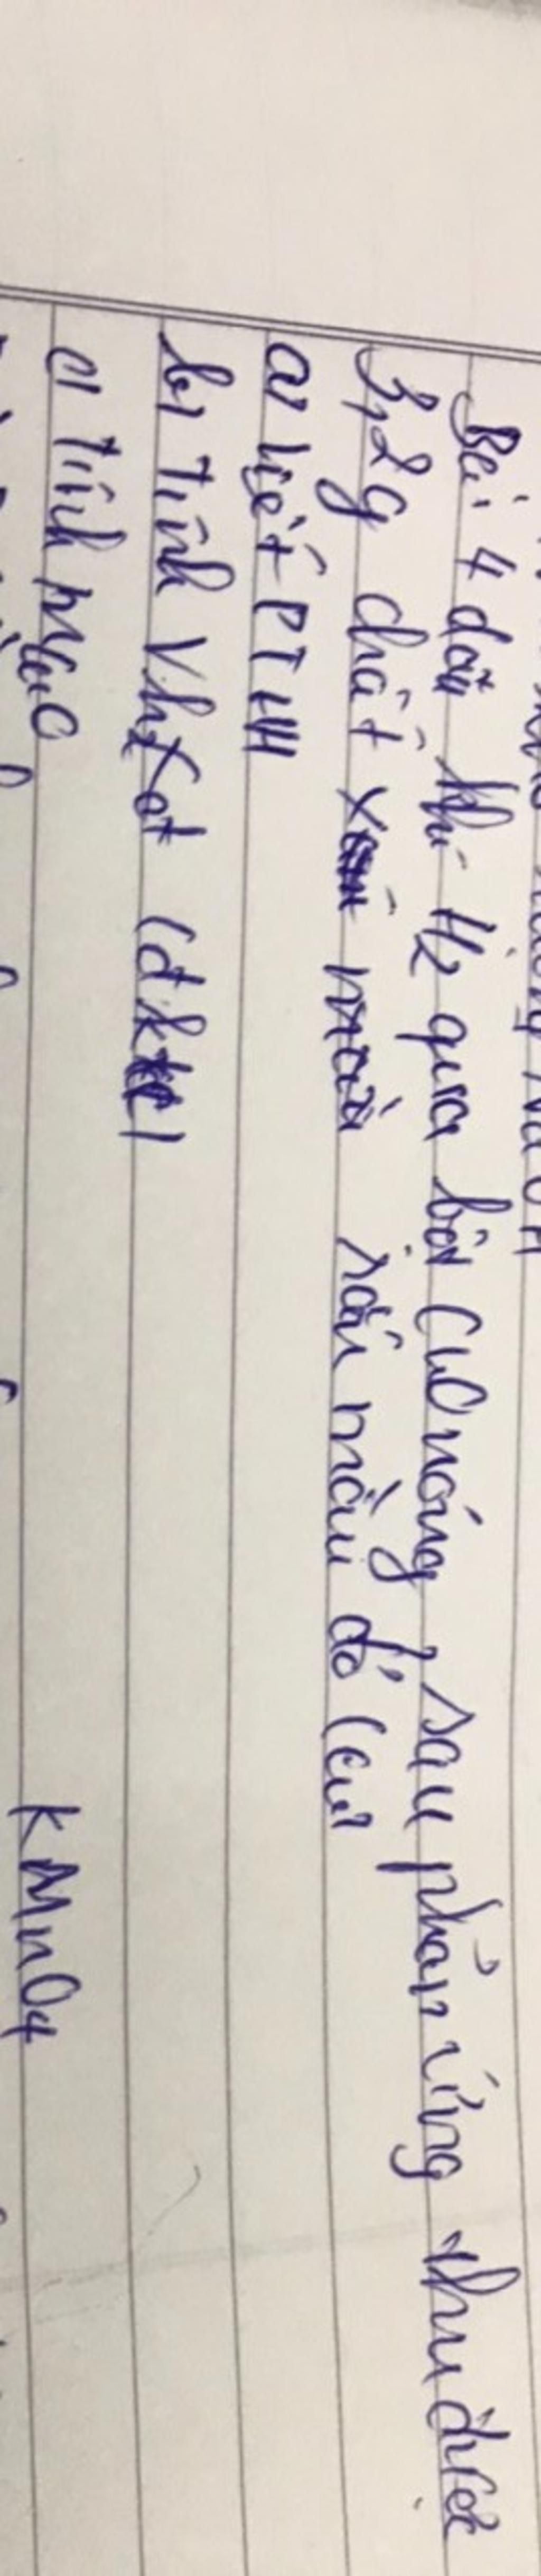 Bài 4 dẫn khí H2 qua bột CuO nóng, sau phản ứng thu được
3,2g chất rắn màu đỏ (Cu)
a) Viết PTHH
b) Tính VH2 (đktc)
c) Tính mCuO
KMnO4